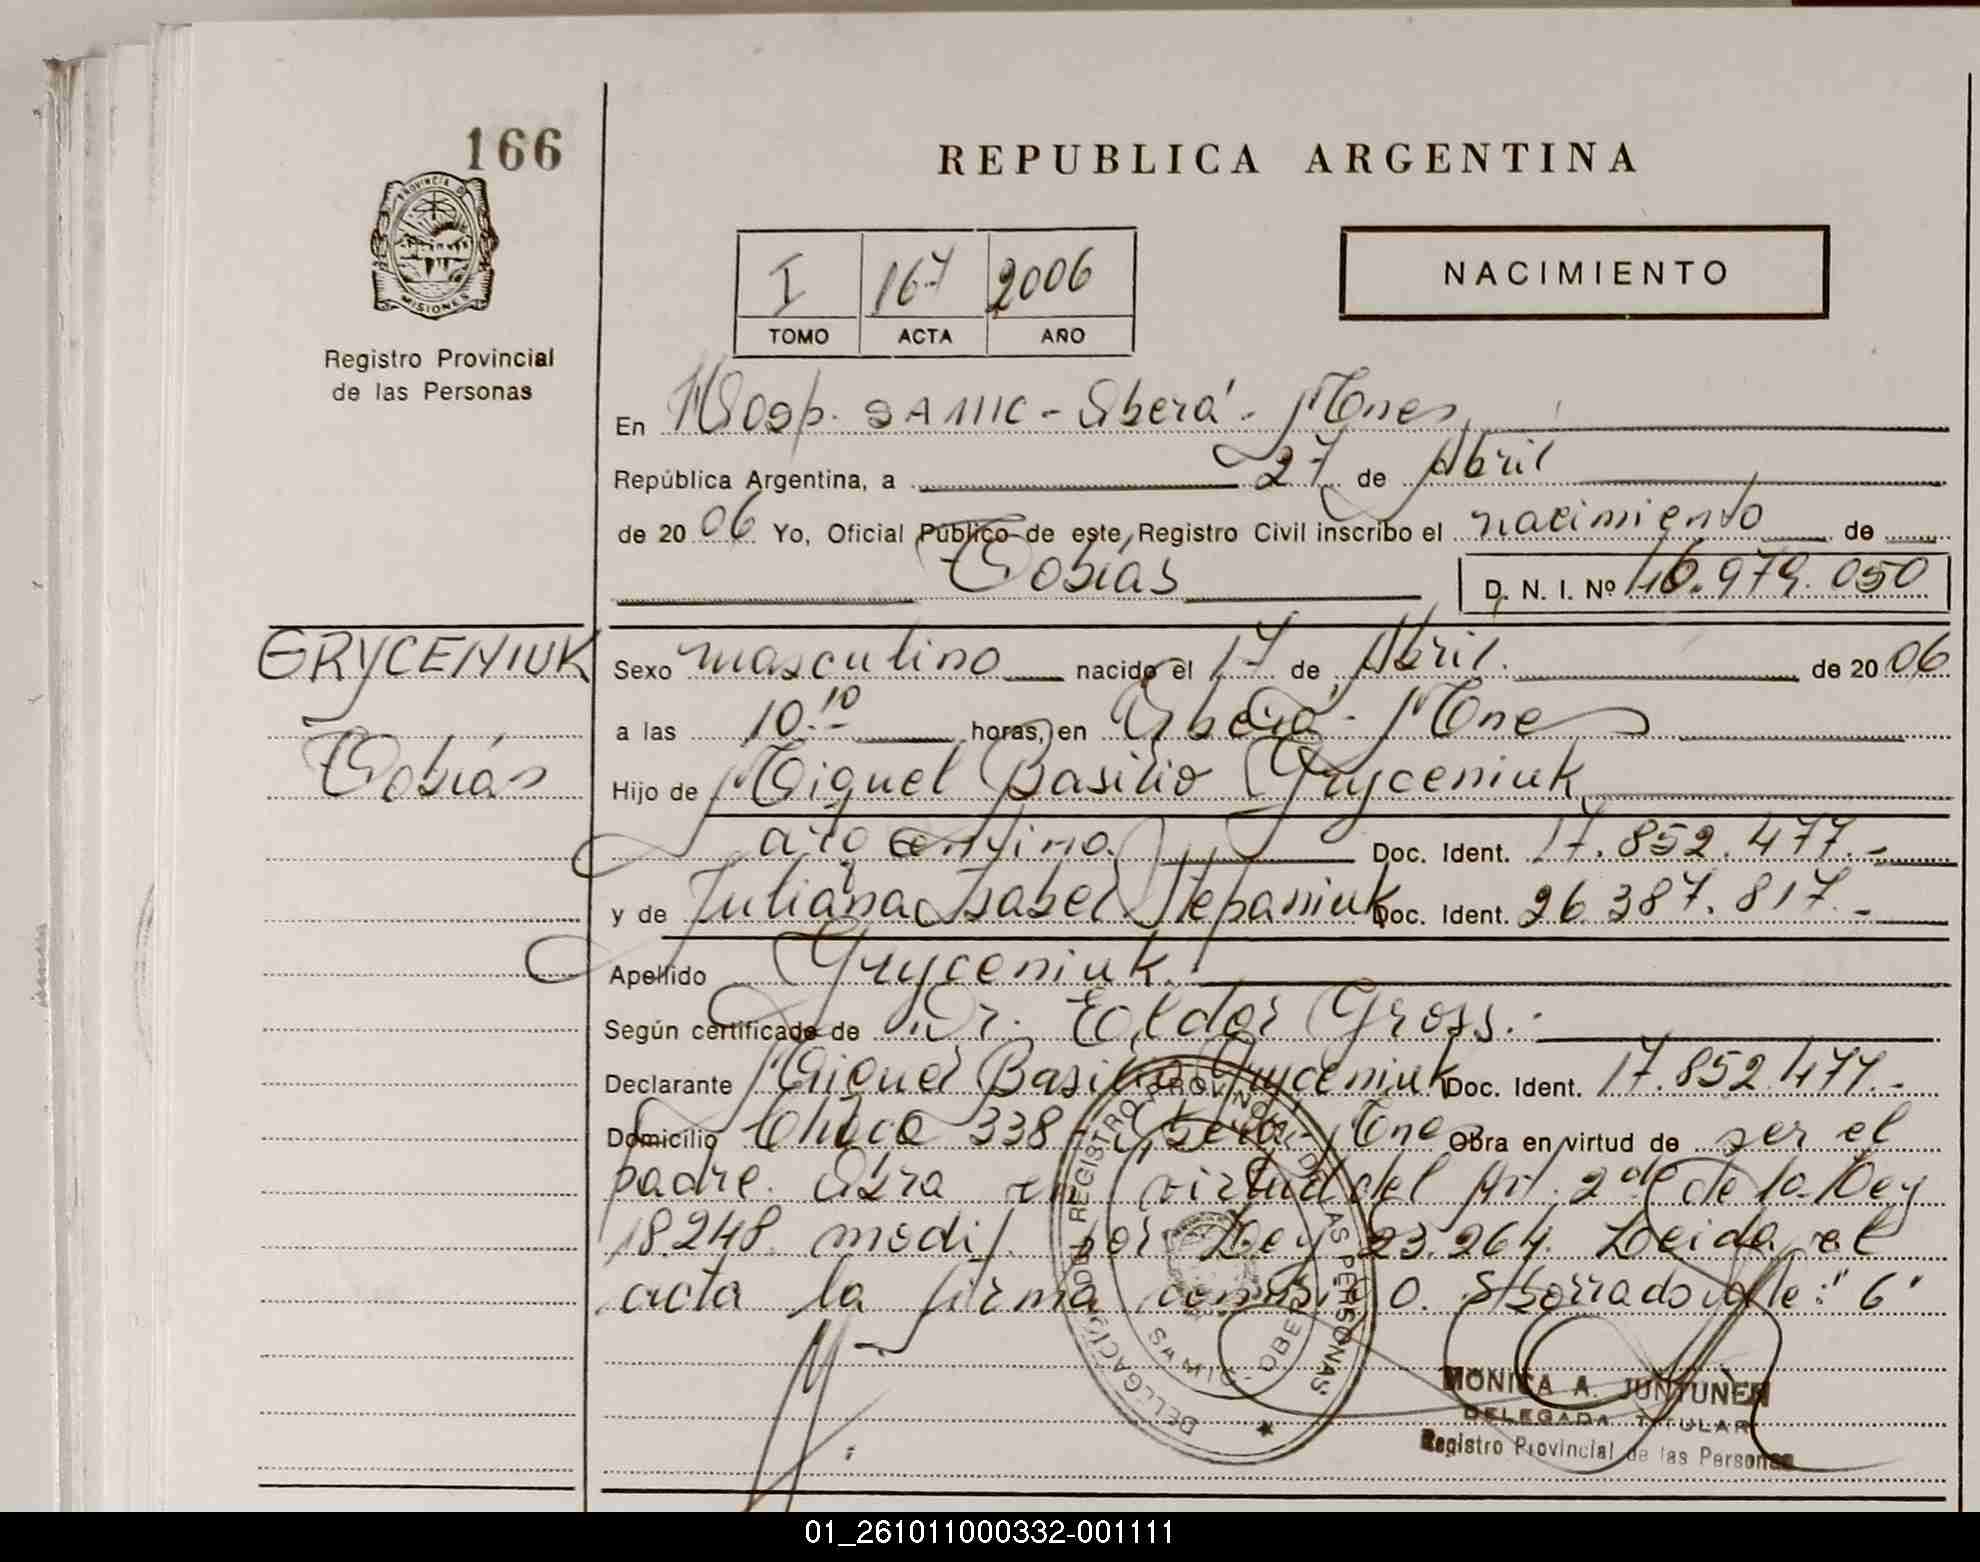 166
REPUBLICA ARGENTINA
PROVINCIA D
MISIONES
Registro Provincial
de las Personas
I 167 2006
TOMO ACTA AÑO
NACIMIENTO
En Hosp. SAMIC - Oberá - Mnes
República Argentina, a 27 de Abril
de 2006 Yo, Oficial Público de este Registro Civil inscribo el nacimiento de
Tobías D. N. I. Nº 46.979.050
GRYCENIUK
Tobías
Sexo masculino nacido el 17 de Abril. de 2006
a las 10.10 horas, en Oberá - Mnes
Hijo de Miguel Basilio Gryceniuk
argentino. Doc. Ident. 17.852.477.-
y de Juliana Isabel Stepaniuk Doc. Ident. 26.387.817.-
Apellido Gryceniuk.
Según certificado de Dr. Eldor Gross.-
Declarante Miguel Basilio Gryceniuk Doc. Ident. 17.852.477.-
Domicilio Chaco 338 - Oberá - Mnes Obra en virtud de ser el
padre. Obra en virtud del Art. 2do de la Ley
18.248 modif. por Ley 23.264. Leida el
acta la firma conmigo. S/borrado vale: "6"
DELEGACION REGISTRO PROVINCIAL DE LAS PERSONAS
OBERA
MONICA A. JUNTUNEN
DELEGADA TITULAR
Registro Provincial de las Personas
01_261011000332-001111